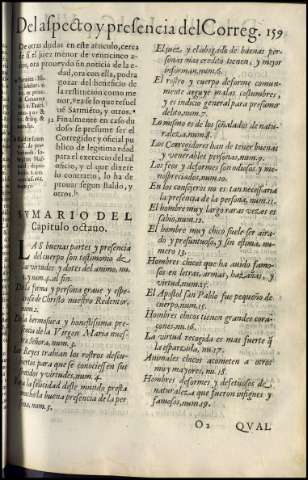 Del aspecto y presencia del Correg. 159
De otras dudas en este articulo, cerca
de si el juez menor de veinticinco a-
ños, ora proueydo sin noticia de la e-
dad, ora con ella, podra
gozar del beneficio de
la restitucion como me
nor, vease lo que resuel
ue Sarmiẽto, y otros.
32 Finalmente en caso du
doso se presume ser el
Corregidor y oficial pu
blico de legitima edad
para el exercicio del tal
oficio, y el que dixere
lo contrario, lo ha de
prouar segun Baldo, y
otros.
SVMARIO DEL
Capitulo octauo.
LAS buenas partes y presencia
del cuerpo son testimonio de
virtudes y dotes del animo, nu.
1. y num. al fin.
De la forma y persona graue y espe-
ciosa de Christo nuestro Redentor,
num. 2.
De la hermosura y honestissima pre-
sencia de la Virgen Maria nues-
tra señora, num. 3.
Los Reyes trahian los rostros descu-
biertos para que se conociessen sus
virtudes, num. 4.
Para la felicidad deste mundo presta
mucho la buena presencia de la per
sona, num. 5.
El juez, y el abogado de buenas per-
sonas mas credito tienen, y mejor
informan, num. 6.
El rostro y cuerpo deforme comun-
mente arguye malas costumbres,
y es indicio general para presumir
delito, num. 7.
Lo mismo es de los señalados de natu-
raleza, num. 8.
Los Corregidores han de tener buenas
y venerables personas, num. 9.
Lo feo y deforme son odiosos, y me-
nospreciados, num. 10.
En los consejeros no es tan necessaria
la presencia de la persona, num. 11.
El hombre muy largo raras vezes es
sabio, num. 12.
El hombre muy chico suele ser aira-
do y presuntuoso, y sin estima, nu-
mero 13.
Hombres chicos que ha auido famo-
sos en letras, armas, hazañas, y
virtud, num. 25.
El Apostol san Pablo fue pequeño de
cuerpo, num. 15.
Hombres chicos tienen grandes cora-
çones, nu. 16.
La virtud recogida es mas fuerte q̃
la esparzida, nu. 17.
Animales chicos acometen a otros
muy mayores, nu. 18.
Hombres deformes y defetuosos de
naturaleza que fueron insignes y
famosos, num. 19.
O 2 QVAL